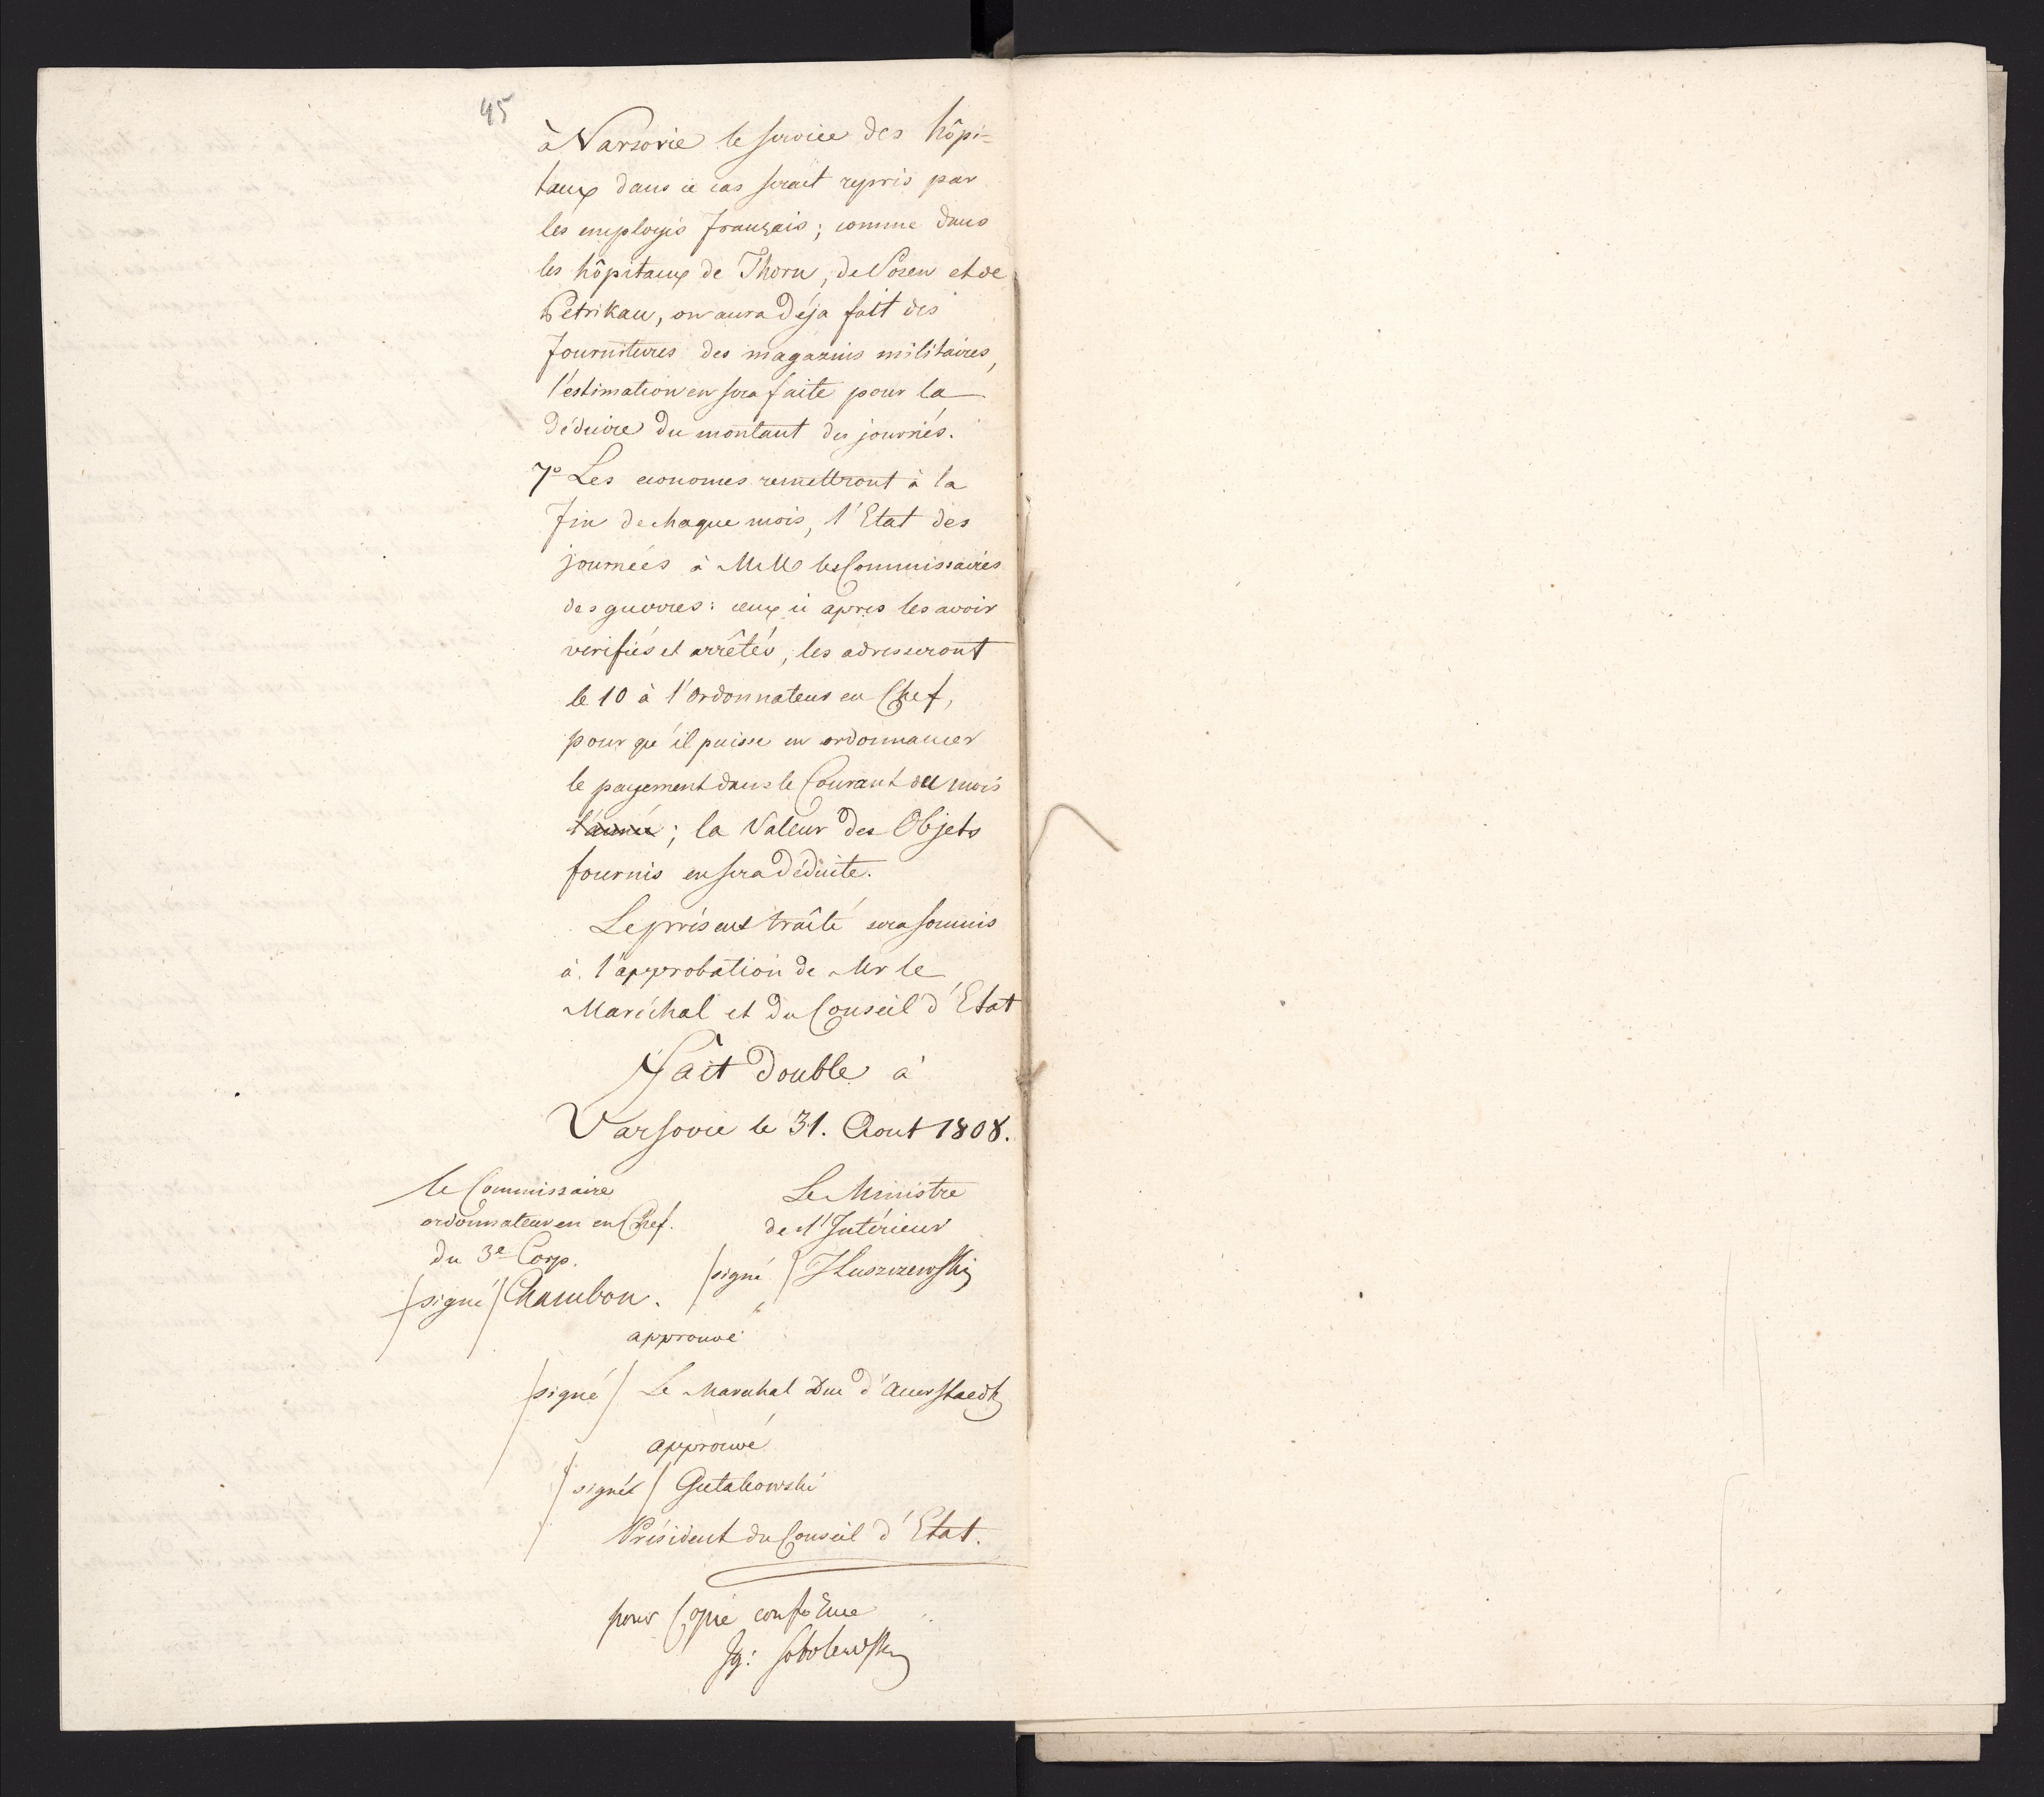 45
à Varsovie le service des hôpi-
taux dans ce cas serait repris par
les employés français; comme dans
les hôpitaux de Thorn, de Posen et de
Petrikau, on aura déja fait des
fournitures des magazins militaires,
l'estimation en sera faite pour la
déduire du montant des journés.
7° Les economes remettront à la
fin de chaque mois, l'Etat des
journées à MM les Commissaires
des guerres: ceux ci après les avoir
verifiés et arrêtés, les adresseront
le 10 à l'ordonnateur en Chef,
pour qu'il puisse en ordonnancer
le payement dans le Courant du mois
; la Valeur des Objets
fournis en sera déduite.
Le présent traîté sera soumis
à l'approbation de Mr le
Maréchal et du Conseil d'Etat
Fait double à
Varsovie le 31. Aout 1808.
le Commissaire
ordonnateur en en Chef.
du 3e Corp.
/signé/ Chambon.
Le Ministre
de l'Intérieur
/signé/ J Łuszczewski
approuvé
/signé/ Le Marechal Duc d'Auerstaedt
approuvé
/signé/ Gutakowski
Président du Conseil d'Etat.
pour Copie conforme
Ig: Sobolewski